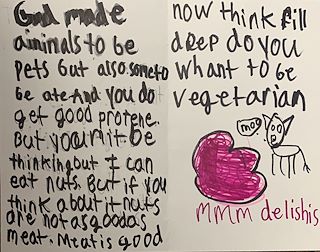 God made
aininals to be
pets but also someto
be ate And you do
get good protene.
But you mit be
thinking but I can
eat nuts. But if you
think about it nuts
are not as good as
meat. Meat is good
now think fill
deep do you
whant to be
vegetarian
moo
MMM delishis